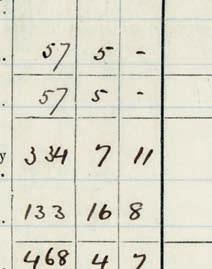 57 5 -
57 5 -
y 334 7 11
133 16 8
468 4 7